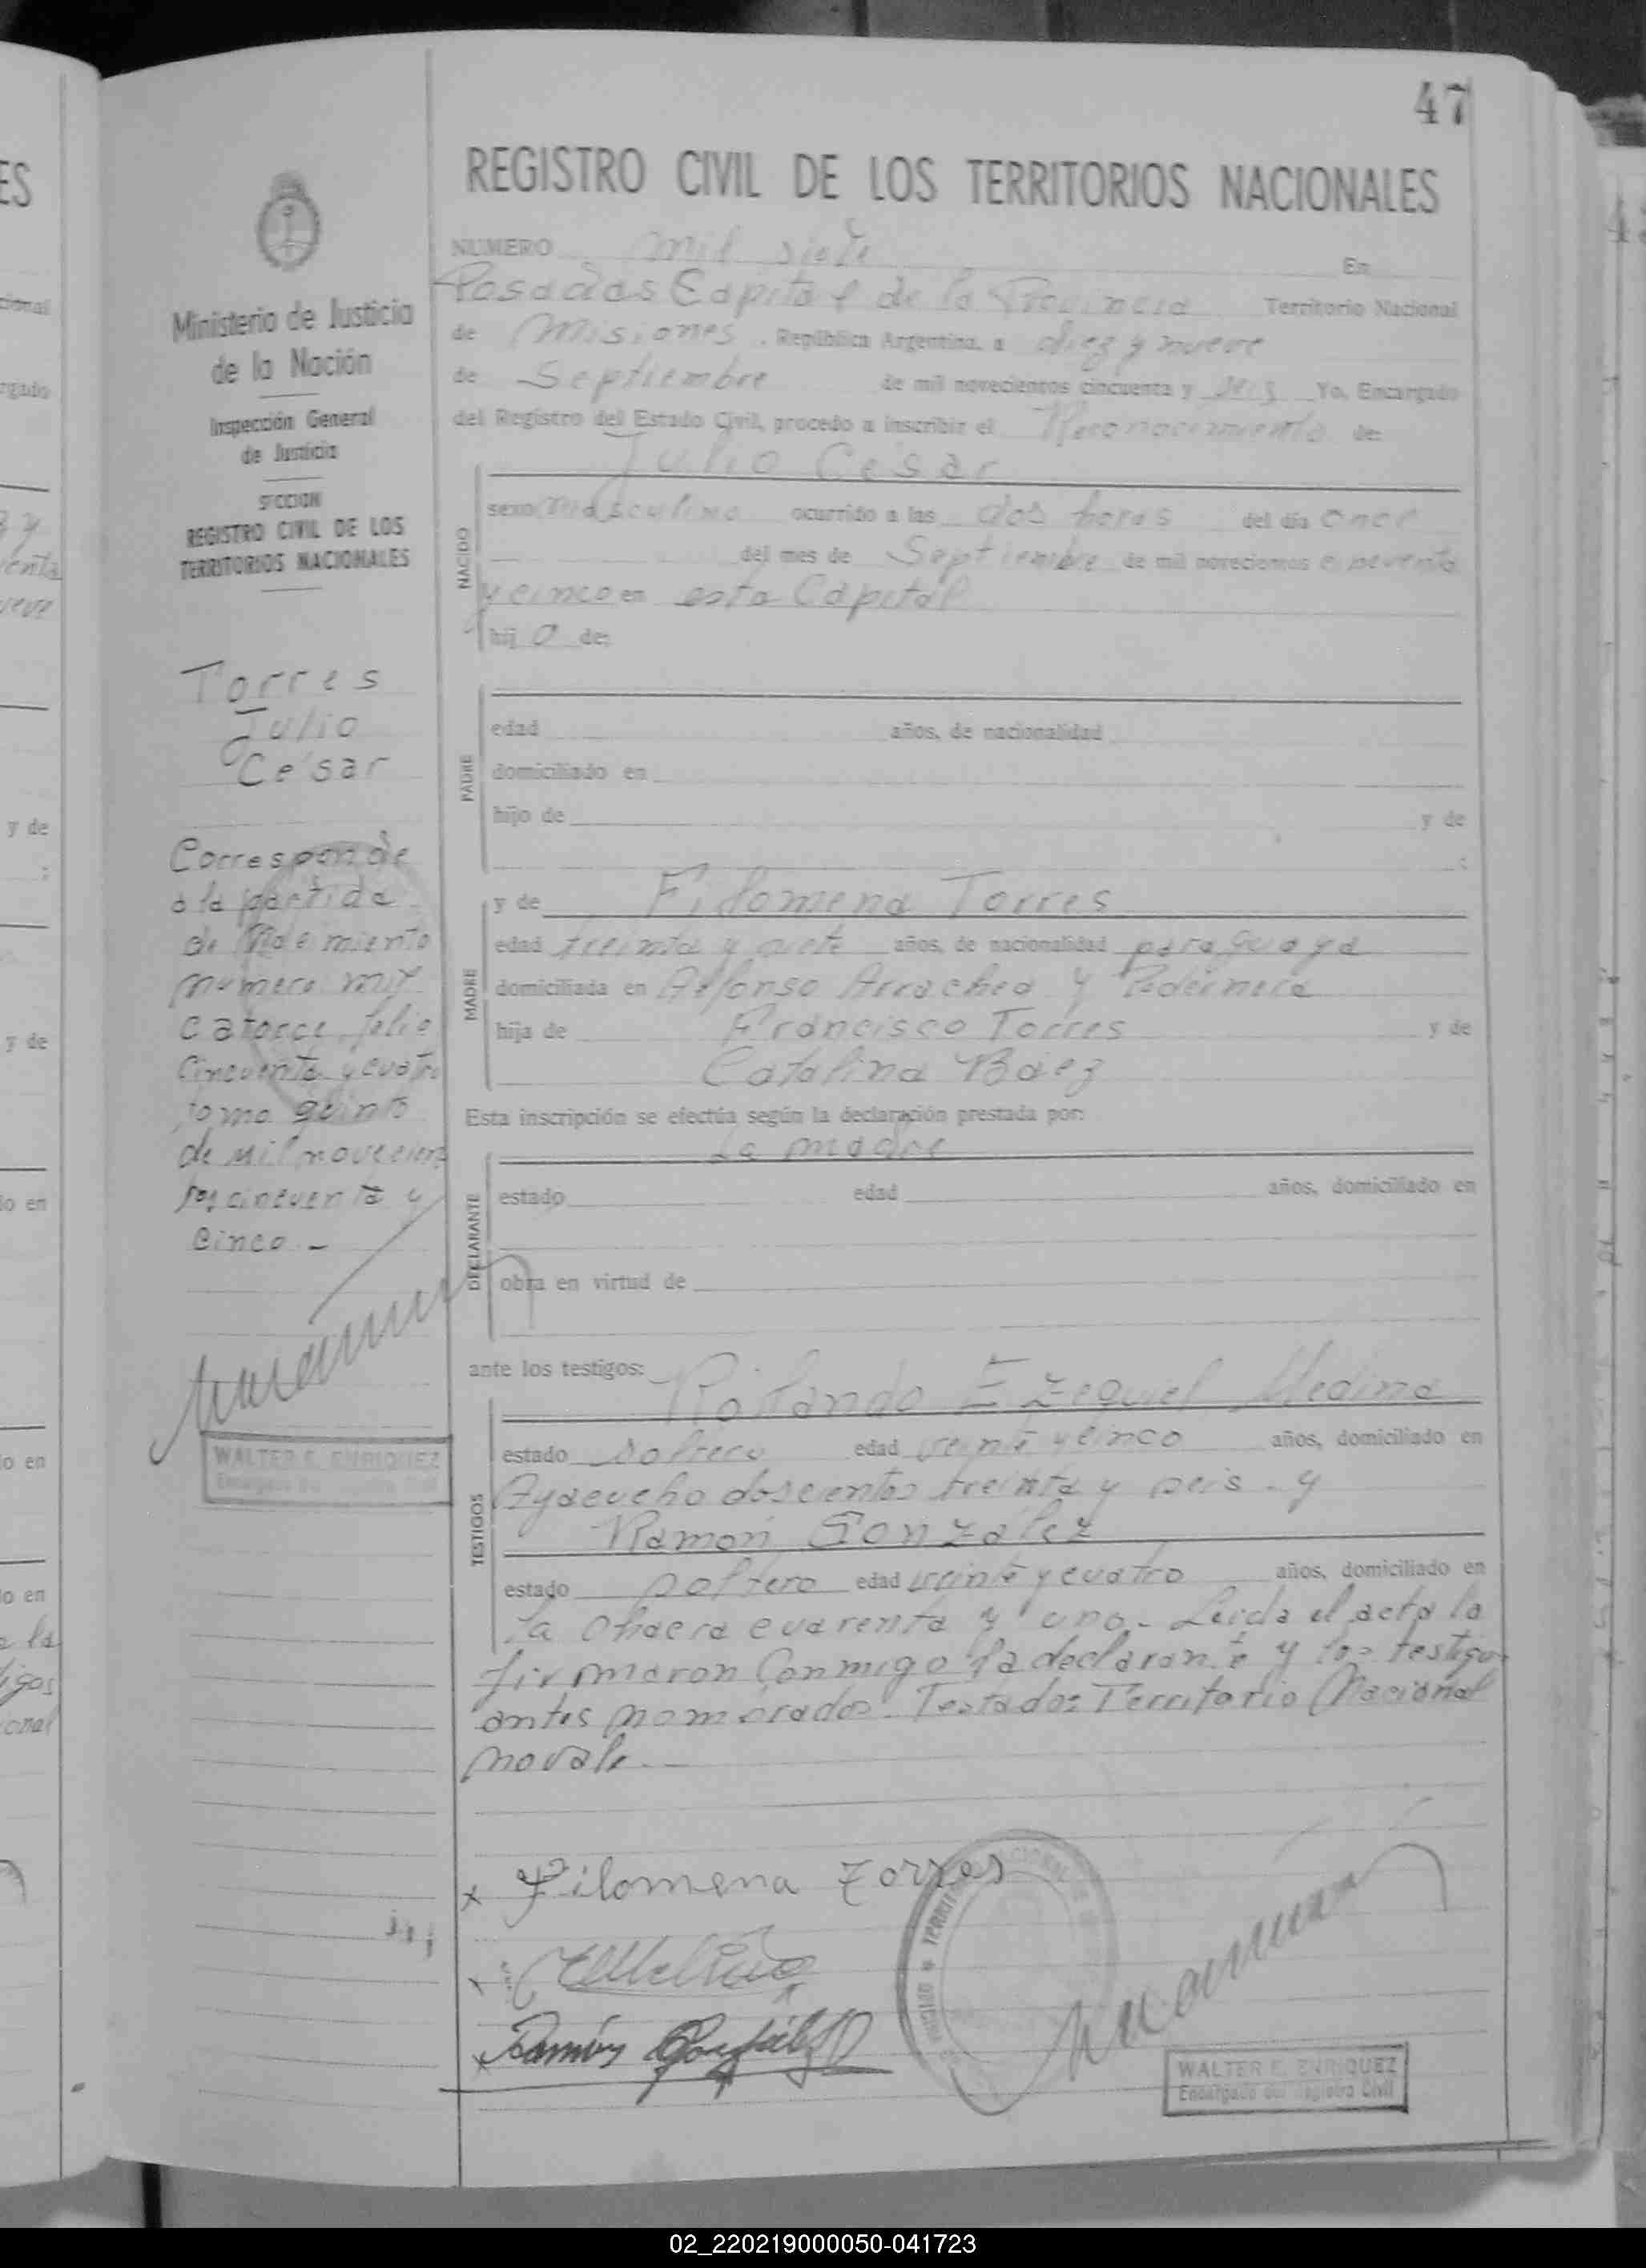 47
REGISTRO CIVIL DE LOS TERRITORIOS NACIONALES
NUMERO mil siete En
Posadas Capital de la Provincia Territorio Nacional
de Misiones, República Argentina, a diez y nueve
de Septiembre de mil novecientos cincuenta y seis Yo, Encargado
del Registro del Estado Civil, procedo a inscribir el Reconocimiento de:
Julio César
NACIDO
sexo masculino ocurrido a las dos horas del día once
del mes de Septiembre de mil novecientos cincuenta
y cinco en esta Capital
hij o de:
PADRE
edad años, de nacionalidad
domiciliado en
hijo de y de
:
MADRE
y de Filomena Torres
edad treinta y siete años, de nacionalidad paraguaya
domiciliada en Alfonso Arrachea y Pedernera
hija de Francisco Torres y de
Catalina Báez
Esta inscripción se efectúa según la declaración prestada por:
La madre
DECLARANTE
estado edad años, domiciliado en
obra en virtud de
ante los testigos:
Rolando Ezequiel Medina
TESTIGOS
estado soltero edad veinte y cinco años, domiciliado en
Ayacucho doscientos treinta y seis - y
Ramón González
estado soltero edad veinte y cuatro años, domiciliado en
La Chacra cuarenta y uno.- Leída el acta la
firmaron conmigo la declarante y los testigos
antes nombrados. Testado: Territorio Nacional
no vale.-
x Filomena Torres
x
x Ramón González
WALTER E. ENRIQUEZ
Encargado del Registro Civil
Ministerio de Justicia
de la Nación
Inspección General
de Justicia
SECCION
REGISTRO CIVIL DE LOS
TERRITORIOS NACIONALES
Torres
Julio
César
Corresponde
a la partida
de Nacimiento
número mil
catorce, folio
cincuenta y cuatro
tomo quinto
de mil novecien
tos cincuenta y
cinco.-
WALTER E. ENRIQUEZ
Encargado del Registro Civil
02_220219000050-041723